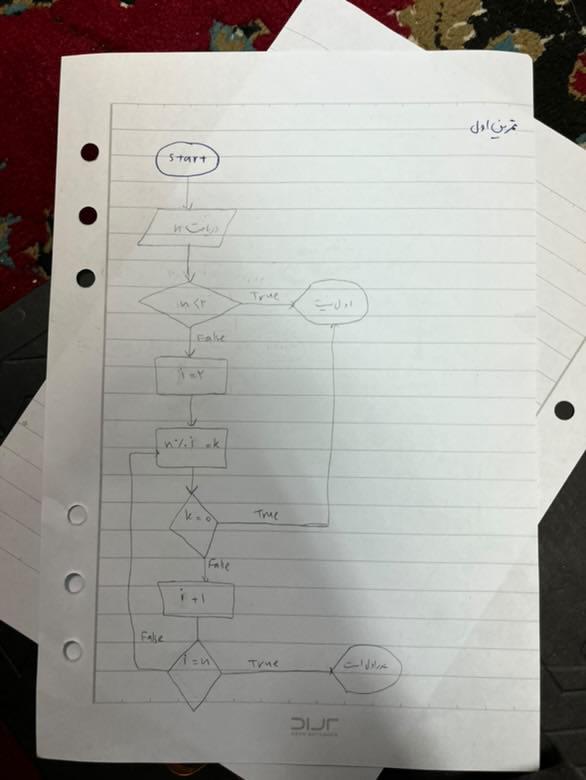 تمرین اول
start
دریافت n
n<۲
True
اول نیست
False
i=۲
n%i=k
k=0
True
False
i+1
False
i=n
True
عدد اول است